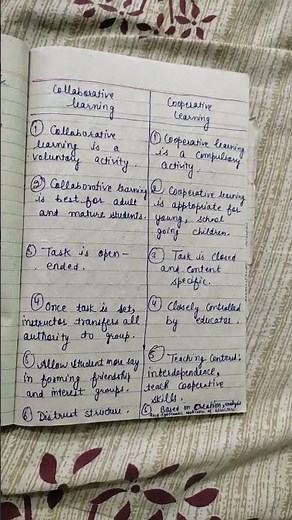 Collaborative
learning
① Collaborative
learning is a
voluntary activity
② Collaborative learning
is best for adult
and mature students.
③ Task is open-
ended.
④ Once task is set,
instructor transfers all
authority to group.
⑤ Allow student more say
in forming friendship
and interest groups.
⑥ Distrust structure.
Cooperative
learning
① Cooperative learning
is a compulsory
activity.
② Cooperative learning
is appropriate for
young, school
going children.
③ Task is closed
and content
specific.
④ Closely controlled
by educator.
⑤ Teaching
interdependence,
teach cooperative
skills.
⑥ Based on Creation, analysis
and systematic